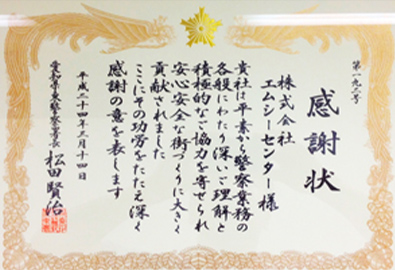 第一九二号
感謝状
株式会社
エムシーセンター様
貴社は平素から警察業務の
各般にわたり深いご理解と
積極的なご協力を寄せられ
安心安全な街づくりに大きく
貢献されました
ここにその功労をたたえ深く
感謝の意を表します
平成二十四年三月十四日
松田賢治